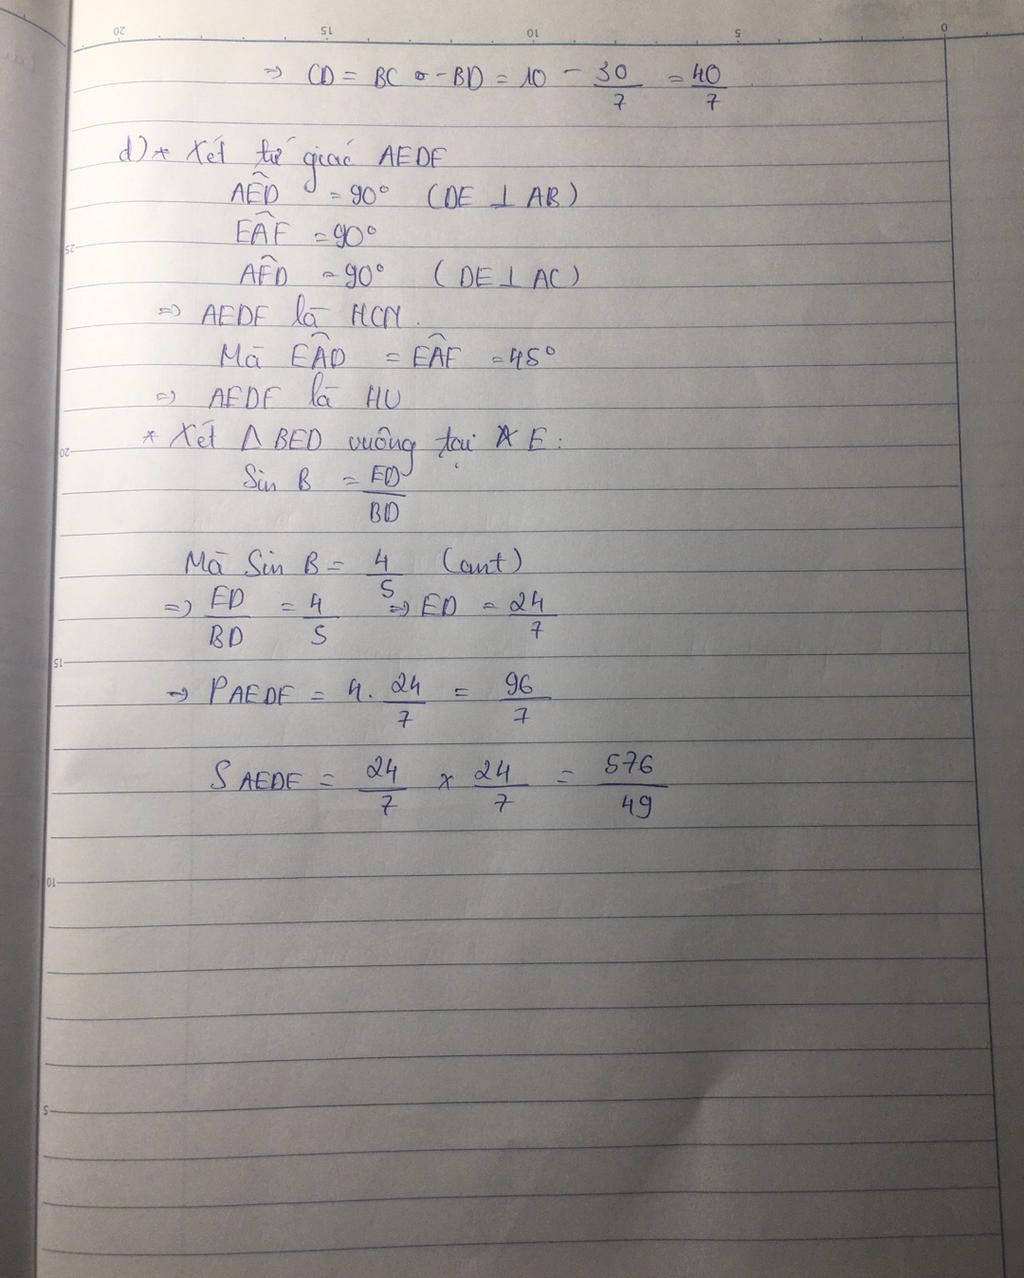 20 15 10 5 0
⇒ CD = BC - BD = 10 - 30/7 = 40/7
d) * Xét tứ giác AEDF
AÊD = 90° (DE ⊥ AB)
EÂF = 90°
AF̂D = 90° (DE ⊥ AC)
⇒ AEDF là HCN.
Mà EÂD = EÂF = 45°
⇒ AEDF là HV
* Xét Δ BED vuông tại E:
Sin B = ED/BD
Mà Sin B = 4/5 (cmt)
⇒ ED/BD = 4/5 ⇒ ED = 24/7
⇒ PAEDF = 4. 24/7 = 96/7
SAEDF = 24/7 x 24/7 = 576/49
25
20
15
10
5